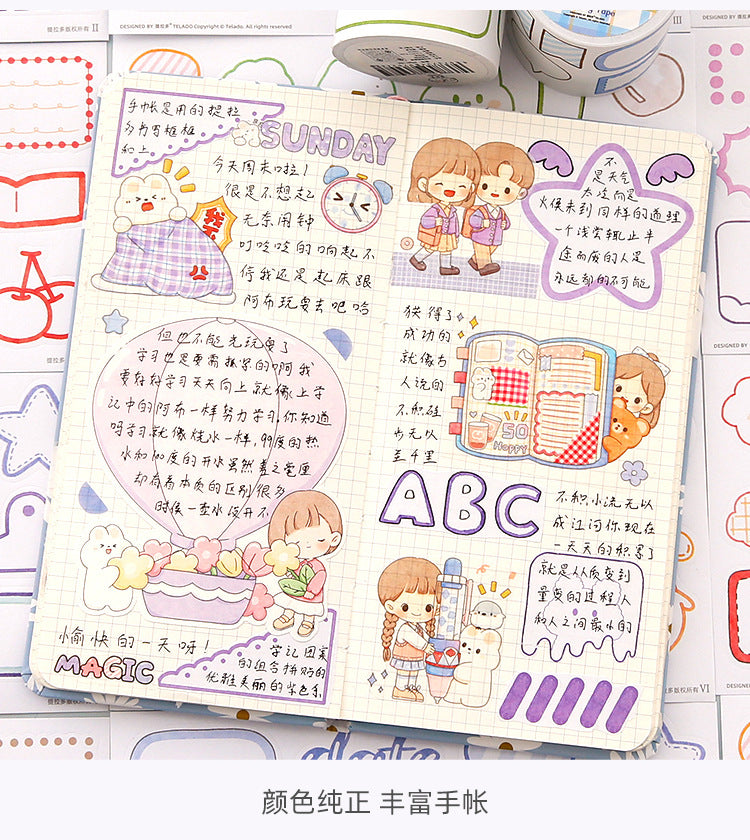 提拉多版权所有 II
DESIGNED BY 提拉多® TELADO Copyright © Telado. All rights reserved
III
手帐是用的提拉
多书写框框
和上
SUNDAY
今天周末啦!
很是不想起
无奈闹钟
叮咚咚的响起不
停我还是起床跟
阿布玩耍去吧哈
但也不能光玩耍了
学习也是要需抓紧的啊我
要好好学习天天向上就像上学
记中的阿布一样努力学习,你知道
吗学习就像烧水一样,99度的热
水和100度的开水虽然差之毫厘
却有着本质的区别很多
时候一壶水没开不
愉快的一天呀!
MAGIC
学记图案
的组合拼贴的
优雅美丽的紫色系
不
是天气
方法而是
火候未到同样的道理
一个浅尝辄止半
途而废的人是
永远都的不可能
获得了
成功的
就像古
人说的
不积硅
步无以
至千里
SO
Happy
ABC
不积小流无以
成江河你现在
一天天的积累了
就是从质变到
量变的过程人
和人之间最小的
DESIGNED BY
提拉多版权所有 VI
DESIGNED
date
颜色纯正 丰富手帐